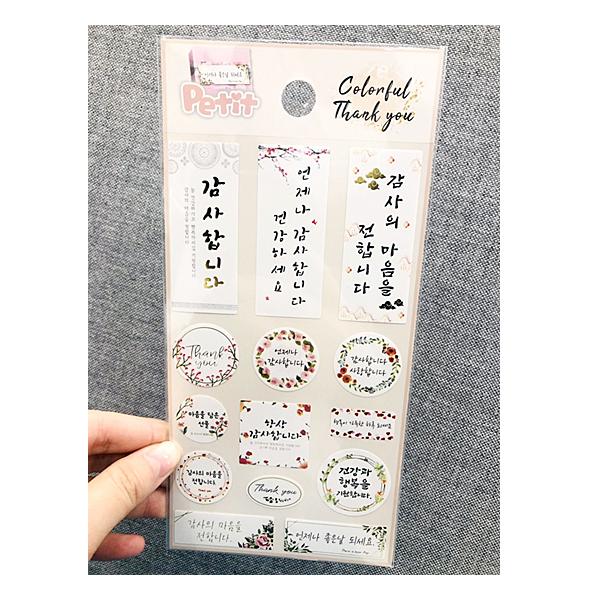 Petit
Colorful
Thank you
감사합니다
언제나 감사합니다
건강하세요
감사의 마음을
전합니다
Thank
you
언제나
감사합니다
감사합니다
사랑합니다
마음을 담은
선물
항상
감사합니다
행복이 가득한 하루 되세요
감사의 마음을
전합니다.
Thank you
건강과
행복을
기원합니다.
감사의 마음을
전합니다.
언제나 좋은날 되세요.